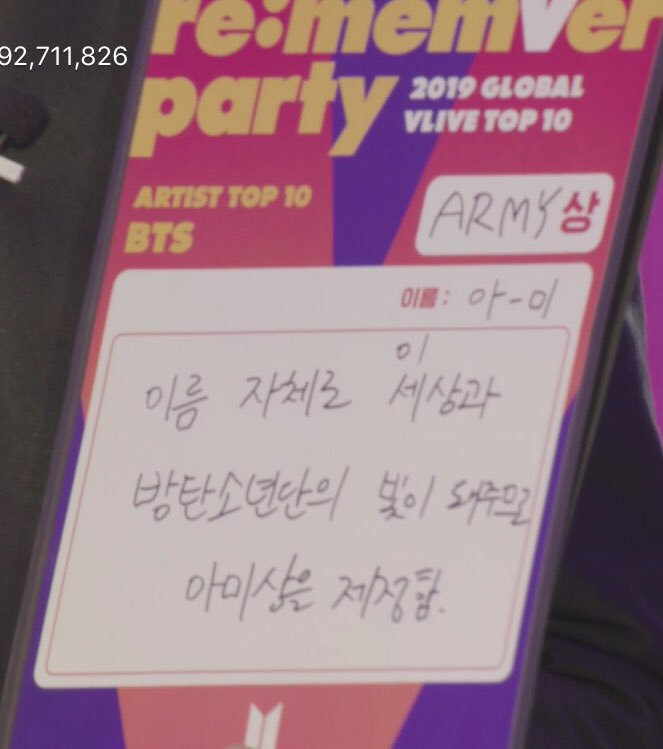 92,711,826
re:memVer
party
2019 GLOBAL
VLIVE TOP 10
ARTIST TOP 10
BTS
ARMY상
이름: 아-미
이
이름 자체로 세상과
방탄소년단의 빛이 돼주므로
아미상을 제정함.